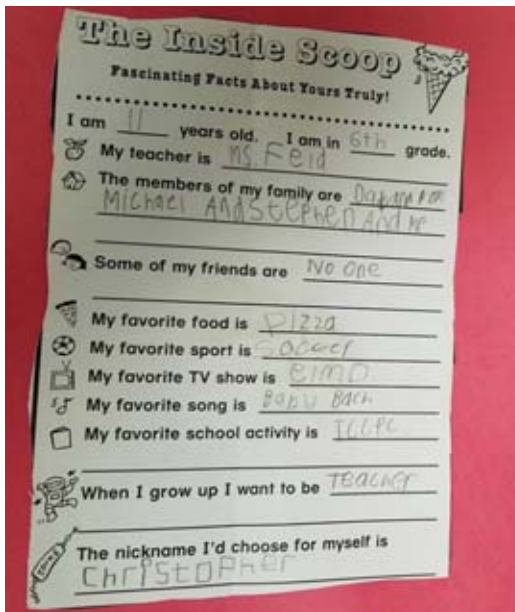 The Inside Scoop
Fascinating Facts About Yours Truly!
I am 11 years old. I am in 6th grade.
My teacher is Ms. Feld
The members of my family are
Michael And Stephen And me
Some of my friends are No one
My favorite food is pizza
My favorite sport is Soccer
My favorite TV show is elmo
My favorite song is Baby Bach
My favorite school activity is
When I grow up I want to be Teacher
The nickname I'd choose for myself is
Christopher